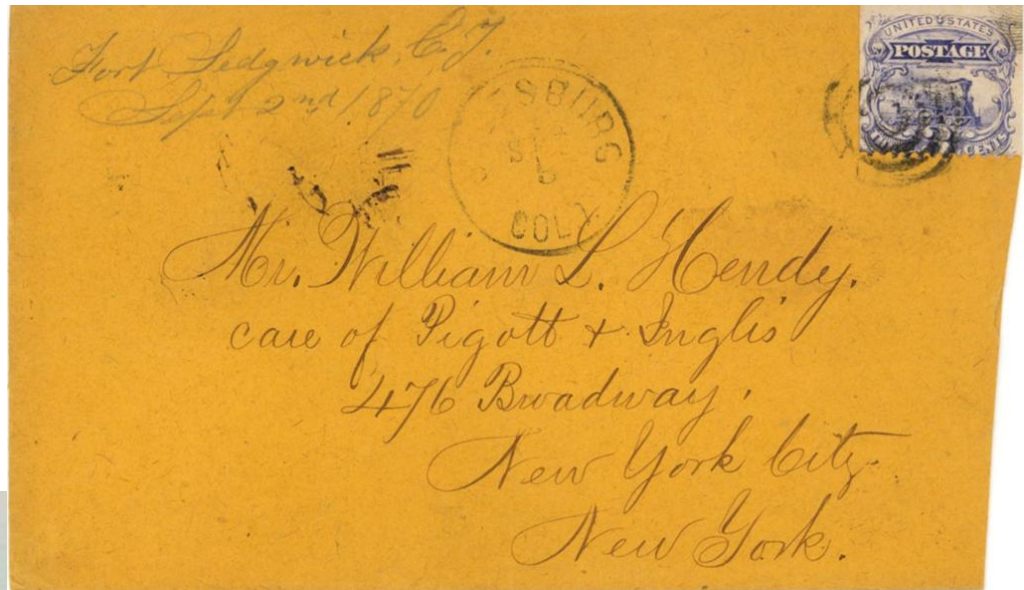 Fort Sedgwick, C.T.
Sept 2nd 1870
SBURG
SE
COL
UNITED STATES
POSTAGE
CENTS
Mr. William L. Hendy.
care of Pigott & Inglis
476 Broadway.
New York City.
New York.